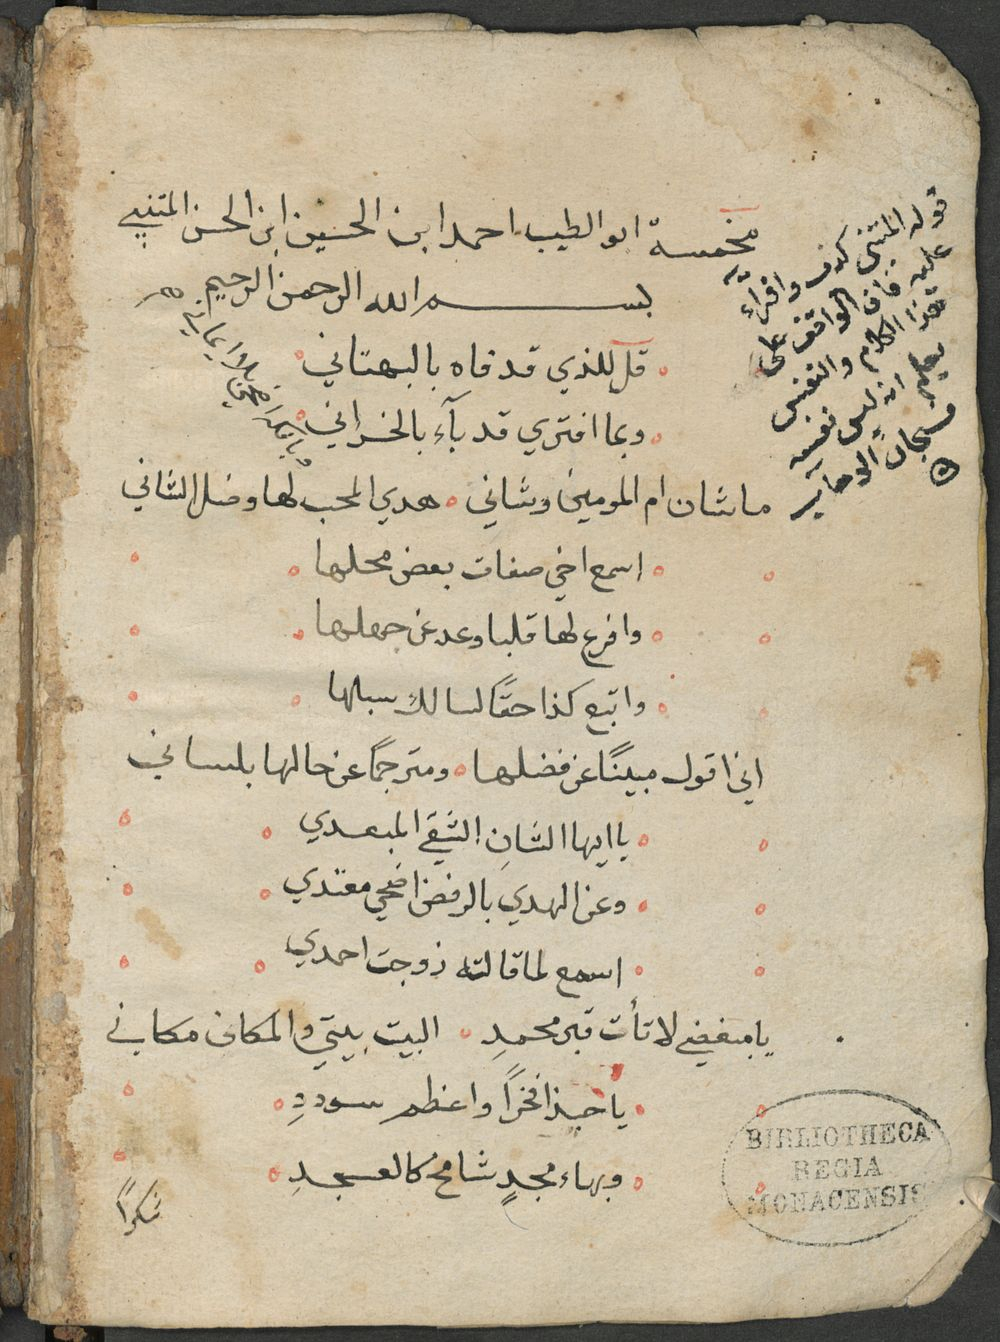 مخمسة ابو الطيب احمد ابن الحسين ابن الحسن المتنبي
بسم الله الرحمن الرحيم
قل للذي قد فاه بالبهتاني
وبما افتري قد بآء بالخسراني
ما شان ام المومنين وشاني ه هدي المحب لها وضل الشاني
اسمع اخي صفات بعض محلها
وافرع لها قلبا وعد عن جهلها
واتبع كذا حقاً لسالك سبلها
اني اقول مبيناً عن فضلها ه ومترجماً عن حالها بلساني
يا ايها الشانِ الشقي المبعدي
وعن الهدي بالرفض اضحي معتدي
اسمع لما قالته زوجت احمدي
يا مبغضي لا تأت قبر محمدِ ه البيت بيتي والمكان مكاني
يا حبذا فخراً واعظم سوددِ
وبهاء مجدٍ شامخ كالعسجدِ
شكراً
قوله المتنبي كذب وافترآء
عليه فان الواقف على
هذا الكلام والنفس
يظهر انه ليس نفسه
BIBLIOTHECA
REGIA
MONACENSIS